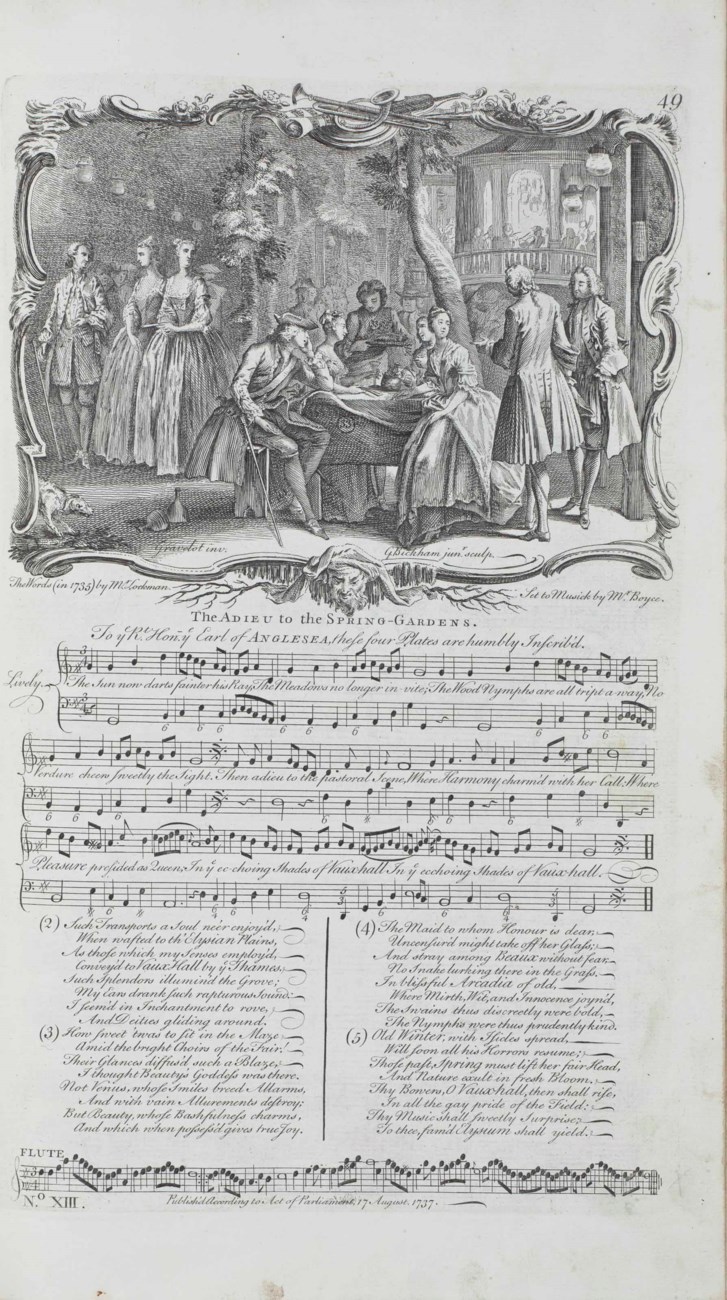 49
Gravelot inv.
G. Bickham jun.r sculp.
The Words (in 1735) by Mr. Lockman.
Set to Musick by Mr. Boyce.
The ADIEU to the SPRING-GARDENS.
To ye Rt. Hon. ye Earl of ANGLESEA, these four Plates are humbly Inscrib'd.
Lively
The Sun now darts fainter his Ray, The Meadows no longer in-vite; The Wood Nymphs are all tript a-way, No
Verdure cheers sweetly the Sight. Then adieu to the pastoral Scene, Where Harmony charm'd with her Call; Where
Pleasure presided as Queen, In ye ec-choing Shades of Vauxhall In ye ecchoing Shades of Vaux-hall.
(2) Such Transports a Soul ne'er enjoy'd,
When wafted to th' Elysian Plains,
As those which my Senses employ'd,
Convey'd to Vaux Hall by ye Thames;
Such Splendors illumin'd the Grove;
My Ears drank such rapturous Sound:
I seem'd in Inchantment to rove,
And Deities gliding around.
(3) How sweet 'twas to sit in the Maze
Amid the bright Choirs of the Fair;
Their Glances diffus'd such a Blaze,
I thought Beauty's Goddess was there.
Not Venus, whose Smiles breed Allarms,
And with vain Allurements destroy;
But Beauty, whose Bashfulness charms,
And which when possess'd gives true Joy.
(4) The Maid to whom Honour is dear,
Uncensur'd might take off her Glass;
And stray among Beaux without fear
No Snake lurking there in the Grass.
In blissful Arcadia of old,
Where Mirth, Wit, and Innocence joyn'd,
The Swains thus discreetly were bold,
The Nymphs were thus prudently kind.
(5) Old Winter, with Isides spread,
Will soon all his Horrors resume;
Those past, Spring must lift her fair Head,
And Nature exult in fresh Bloom.
Thy Bowers, O Vauxhall, then shall rise,
In all the gay pride of the Field:
Thy Music shall sweetly surprise;
To thee, fam'd Elysium shall yield.
FLUTE
No. XIII.
Publish'd According to Act of Parliament, 17 August, 1737.